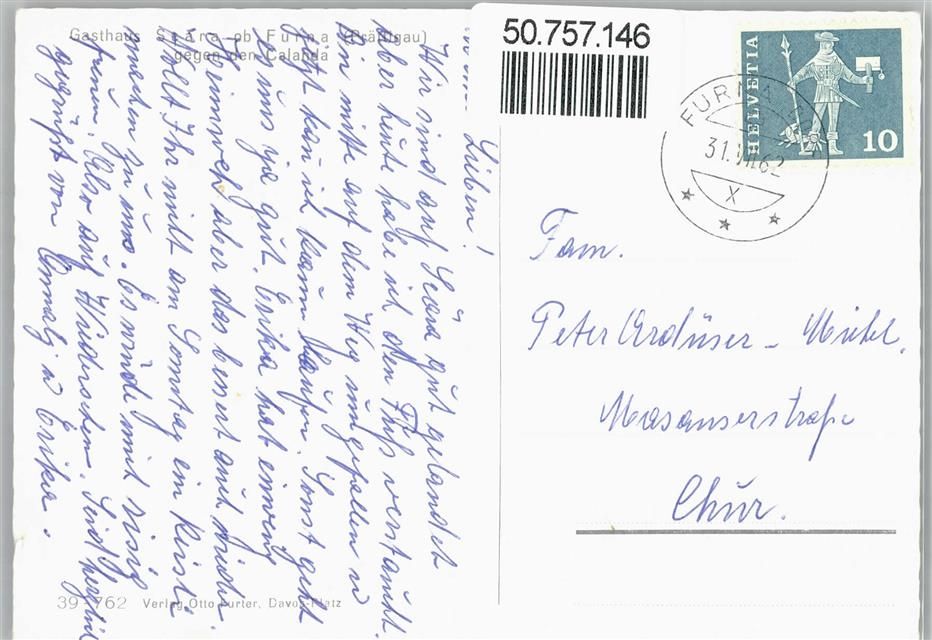 Gasthaus Scära ob Furna (Prättigau)
gegen den Calanda
50.757.146
HELVETIA
10
FURNA
31.VII.62
X
Meine Lieben!
Wir sind auf Scära gut gelandet
Aber heute habe ich den Fuss verstaucht.
Bin mitte auf dem Weg umgefallen u
jetzt kan ich kaum laufen. Sonst geht
es uns ja gut. Erika hat einweng
Heimweh aber das bessert auch wieder.
Wollt Ihr nicht am Sonntag ein Reisli
machen zu uns. Es würde mich risig
freuen. Also auf Wiedersehen. Seid herzlich
gegrüsst von Annalj u Erika.
Fam.
Peter Ardüser - Michel.
Masanserstrasse
Chur.
39 762 Verlag Otto Furter, Davos-Platz